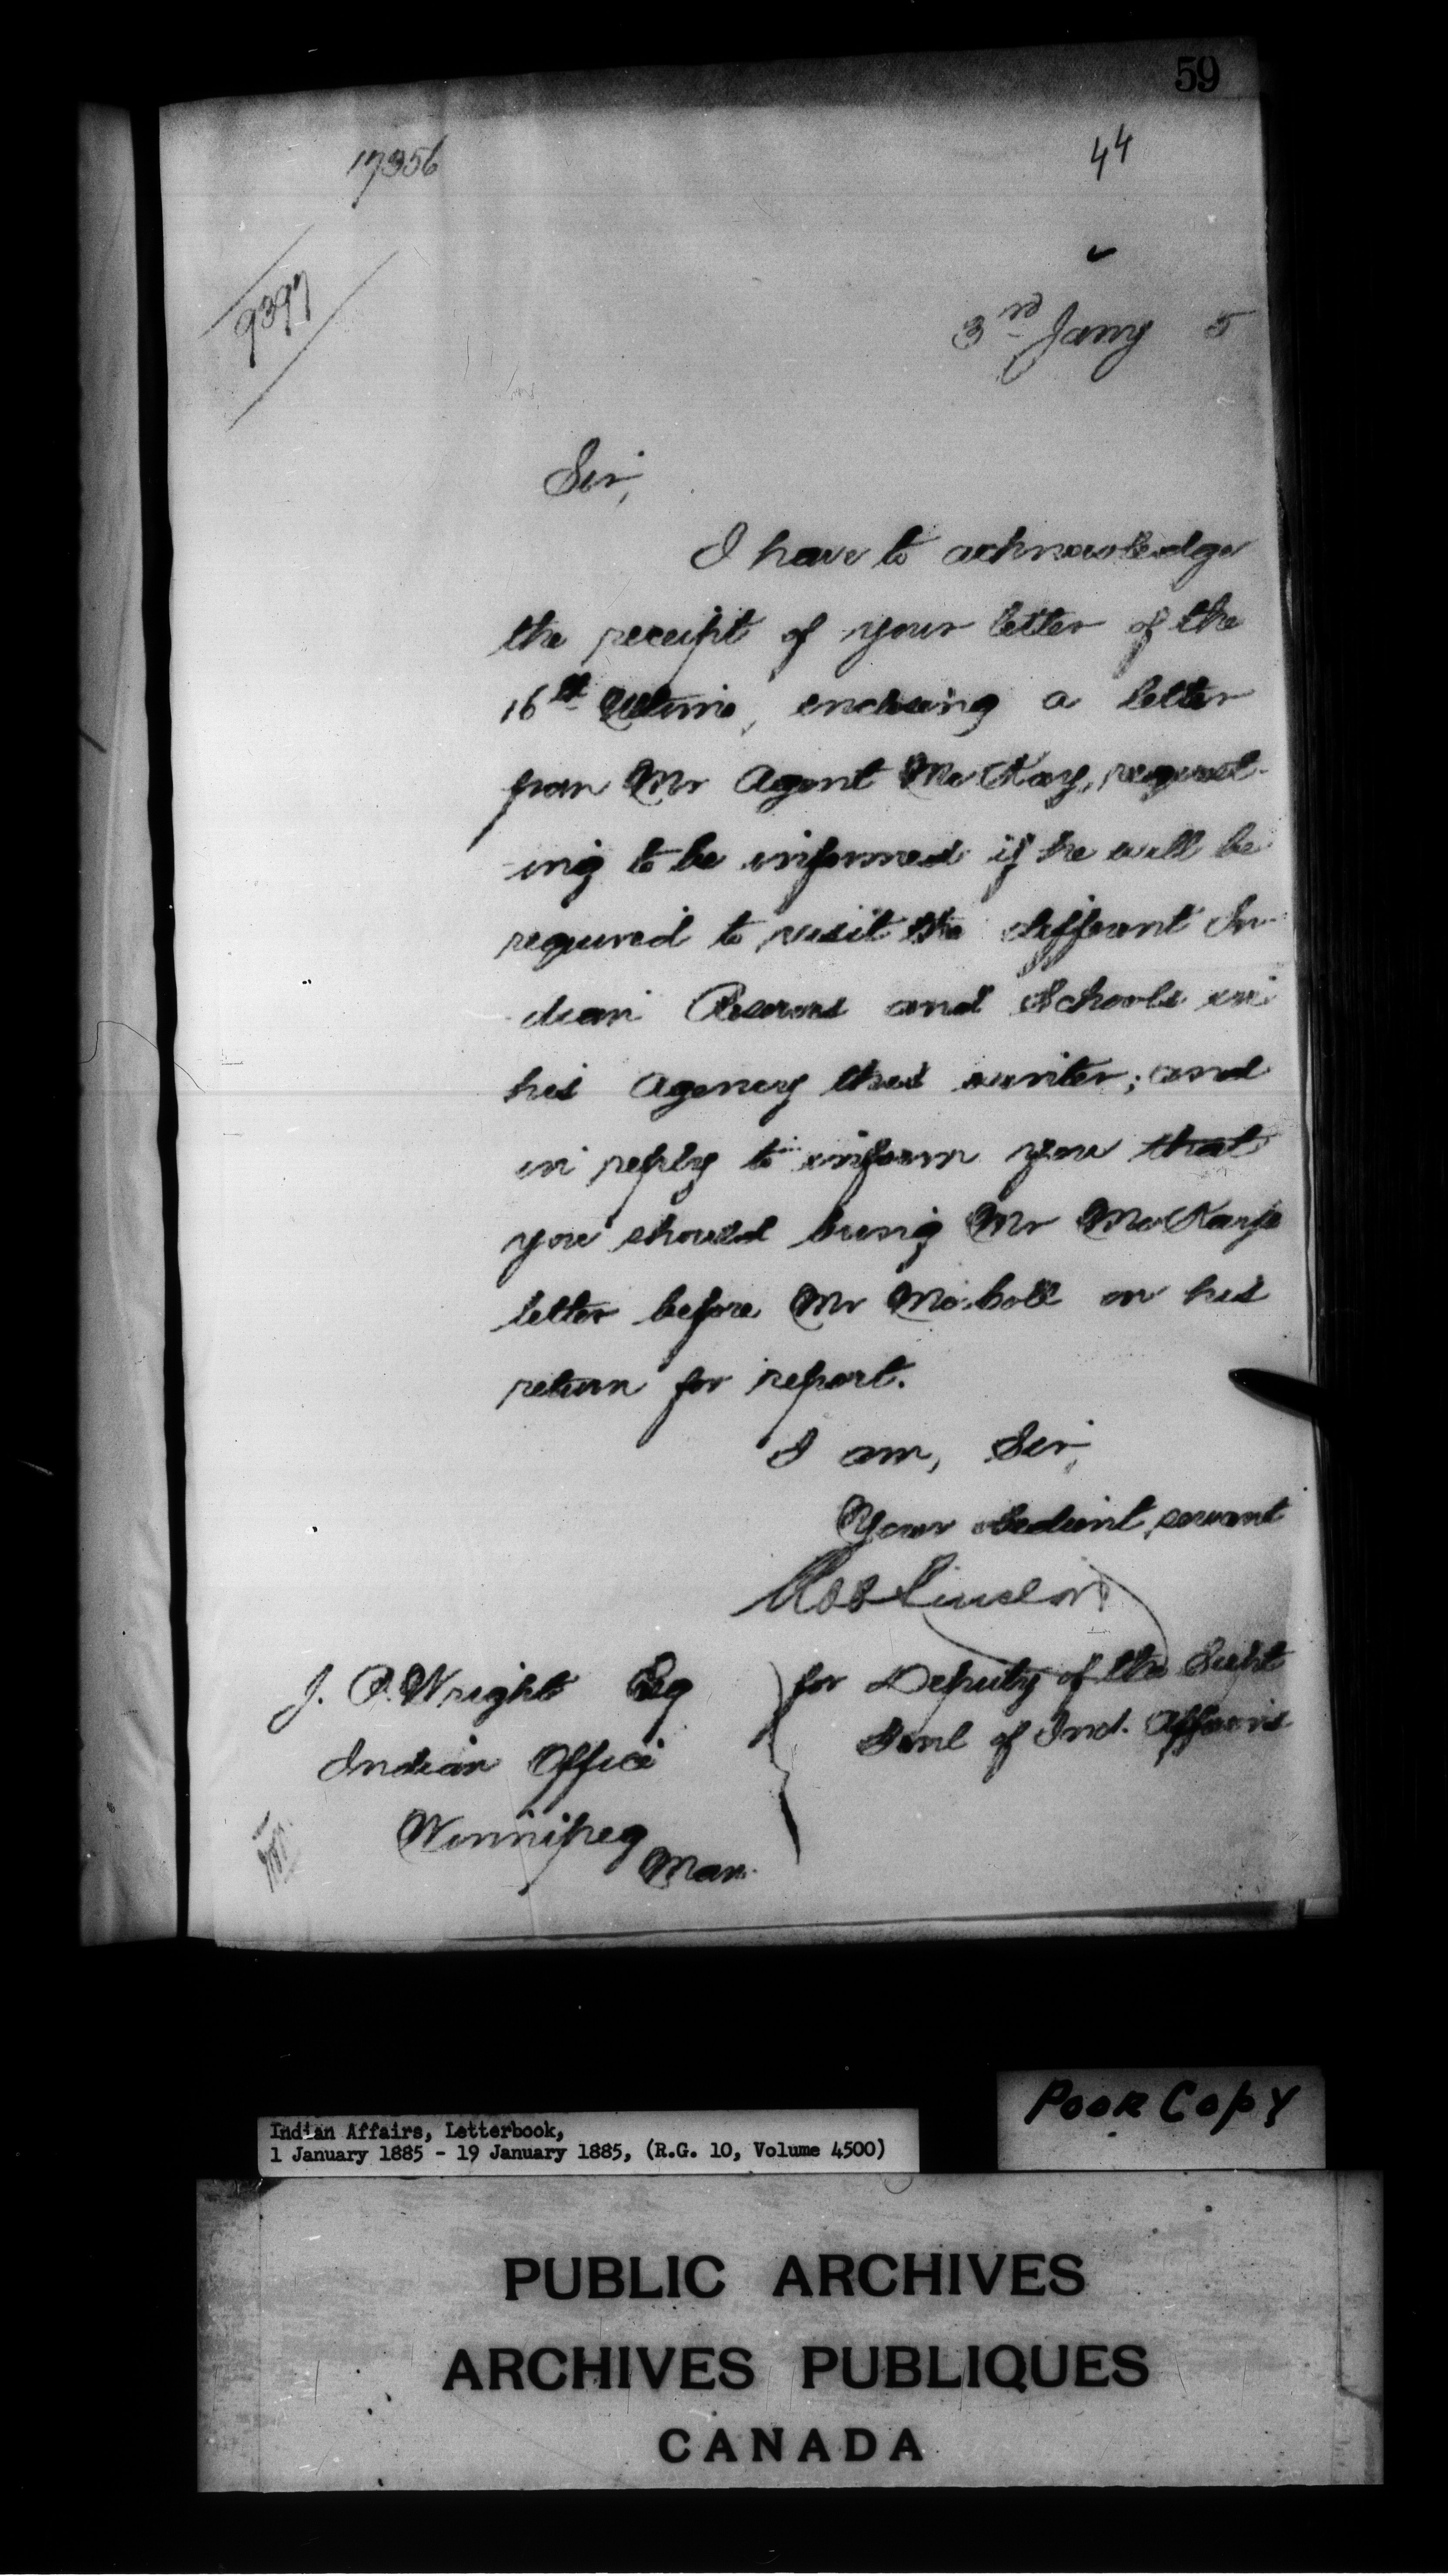 59
17356
44
9397
3rd Jany 5
Sir,
I have to acknowledge
the receipt of your letter of the
16th Ultimo, enclosing a letter
from Mr Agent McKay, request-
ing to be informed if he will be
required to visit the different In-
dian Reserves and Schools in
his Agency this winter; and
in reply to inform you that
you should bring Mr McKay's
letter before Mr McColl on his
return for report.
I am, Sir,
Your obedient servant
for Deputy of the Supt
Genl of Ind. Affairs
J. P. Wright Esq
Indian Office
Winnipeg
Man.
Poor Copy
Indian Affairs, Letterbook,
1 January 1885 - 19 January 1885, (R.G. 10, Volume 4500)
PUBLIC ARCHIVES
ARCHIVES PUBLIQUES
CANADA